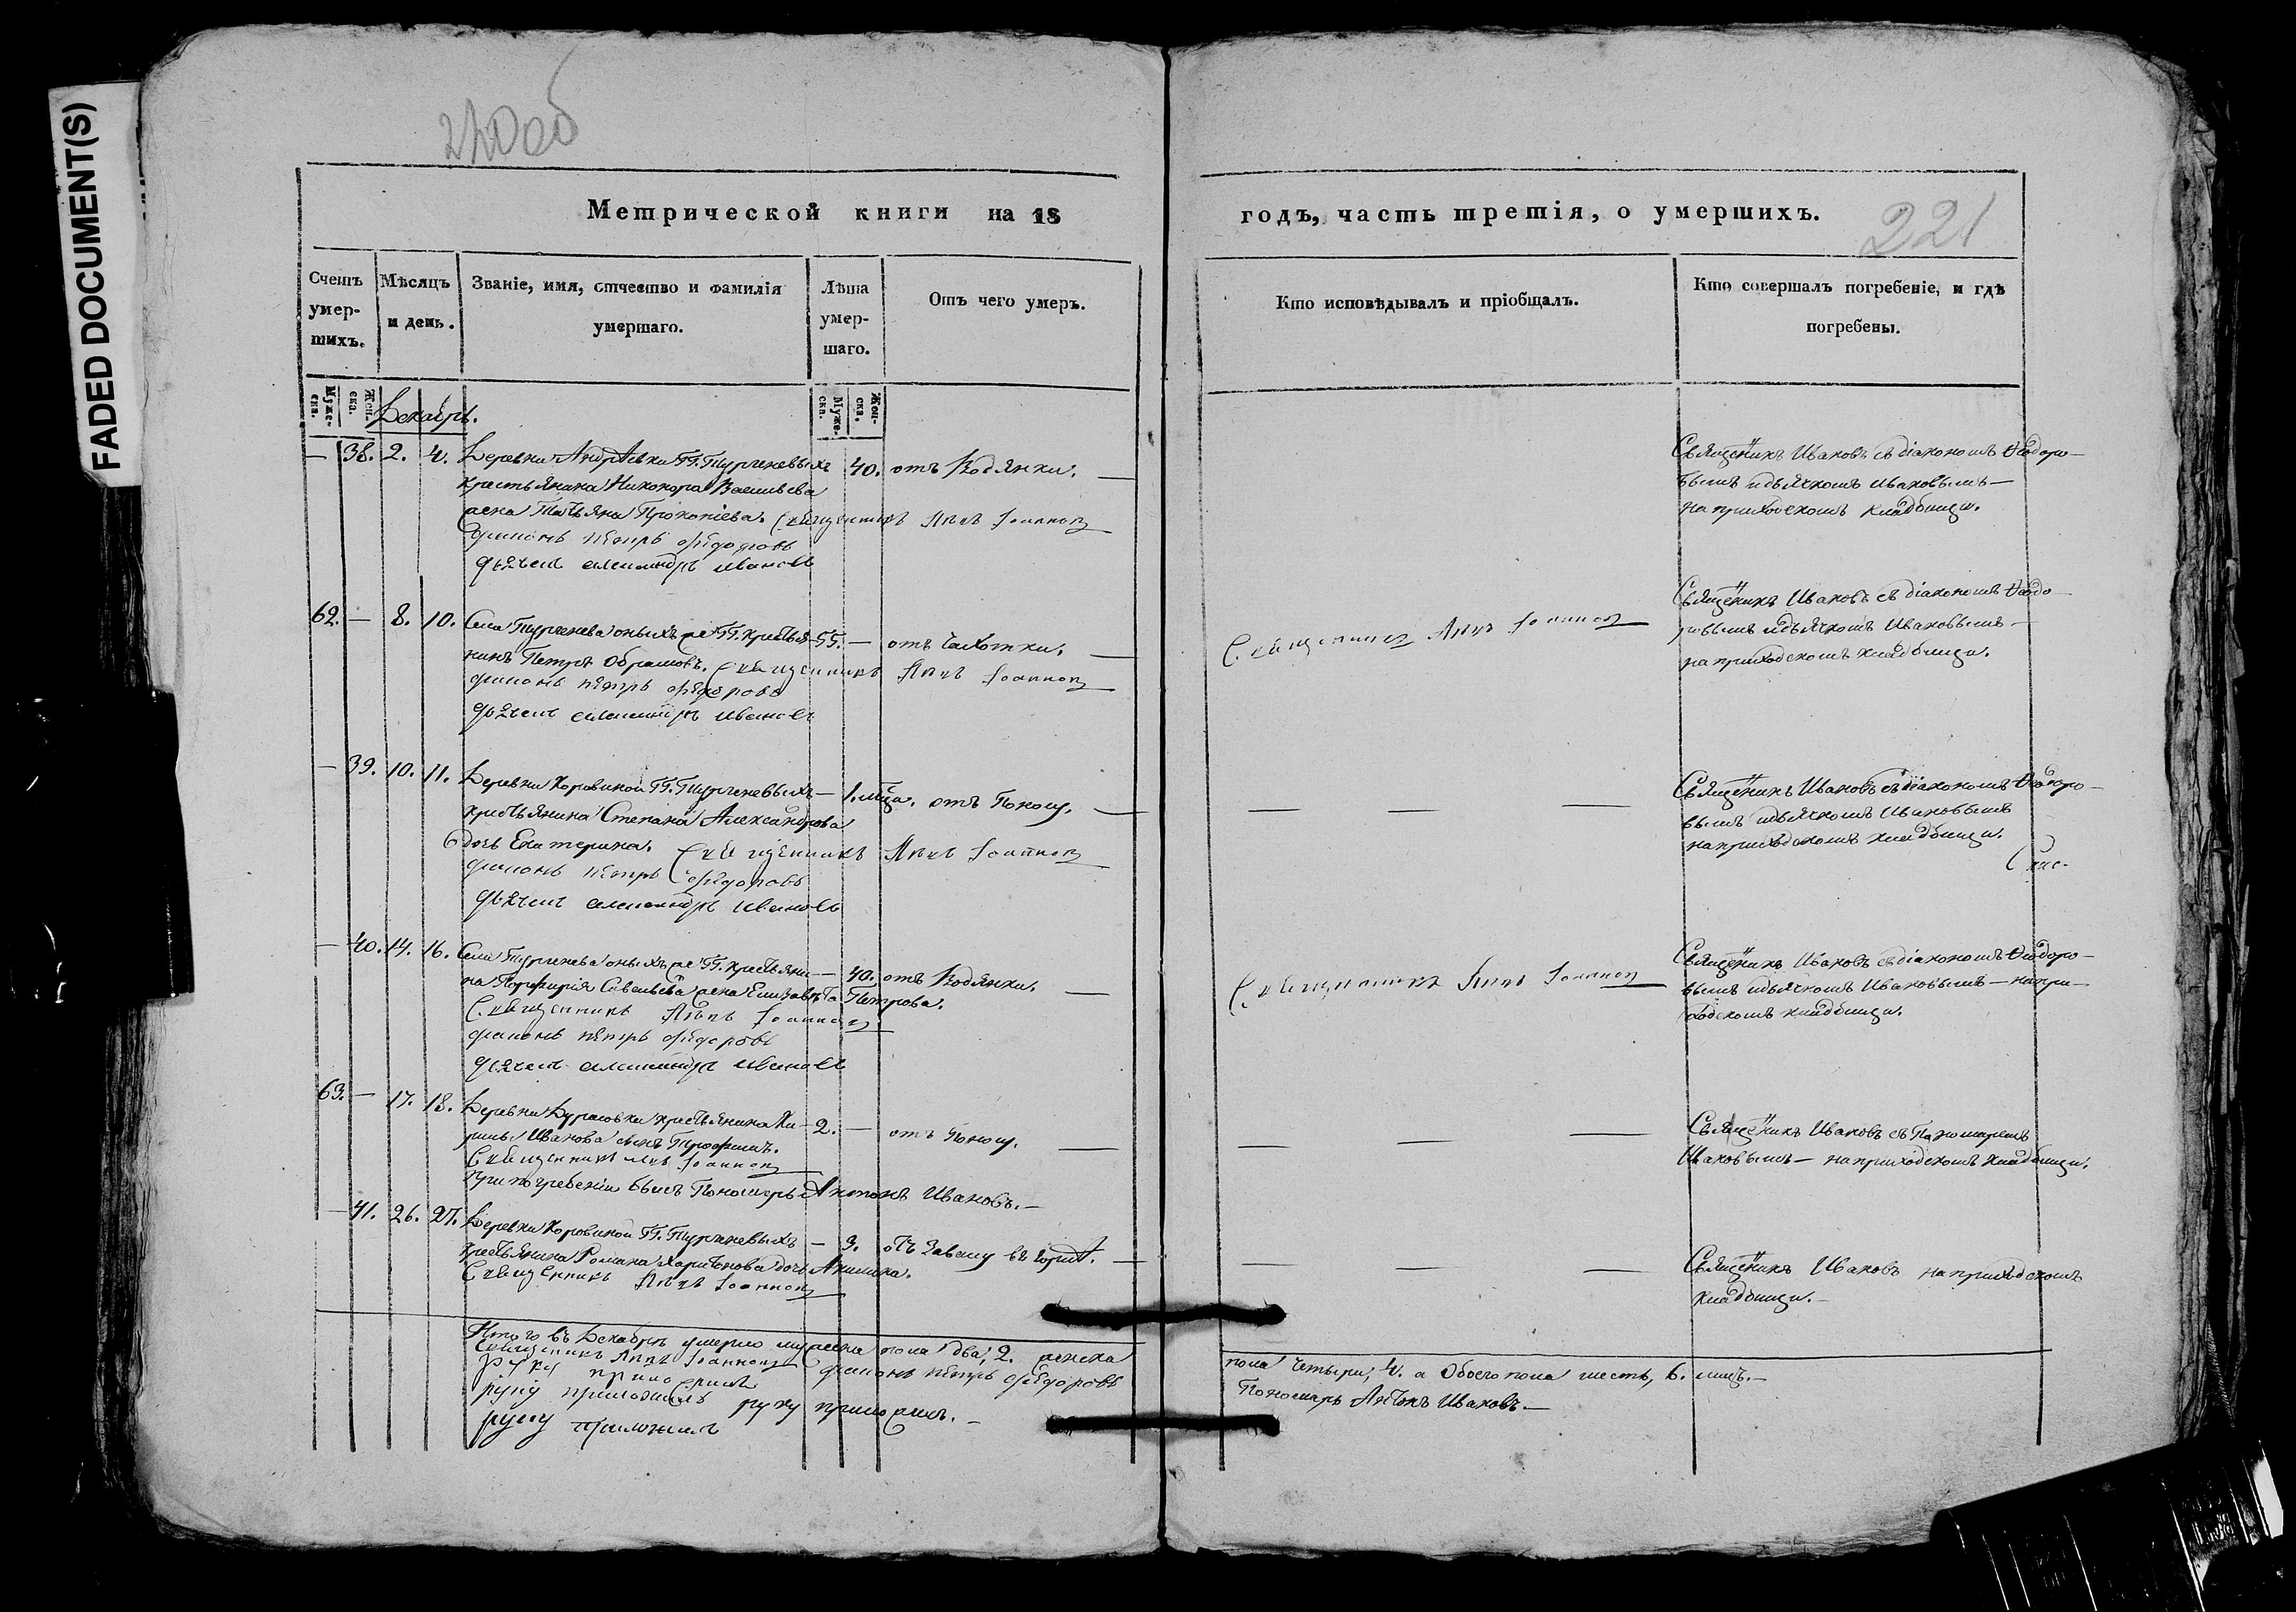 FADED DOCUMENT(S)
220об
221
Метрической книги на 18 годъ, часть третія, о умершихъ.
Счетъ умер-шихъ.
Мѣсяцъ и день.
Званіе, имя, отчество и фамилія умершаго.
Лѣта умер-шаго.
Отъ чего умеръ.
Кто исповѣдывалъ и пріобщалъ.
Кто совершалъ погребеніе, и гдѣ погребены.
Муже-ска.
Жен-ска.
Муже-ска.
Жен-ска.
Декабрь.
— 38. 2. 4. Деревни Андрѣевки ГГ. Тургеневыхъ 40. отъ Водянки. —
крестьянина Никонора Васильева
жена Татьяна Прокопіева. Священникъ Іоаннов
диаконъ Петръ Фёдоровъ
дьячекъ александръ ивановъ
Священникъ Ивановъ съ діакономъ Ѳеодоро—
вымъ и дьячкомъ Ивановымъ—
на приходскомъ кладбищи.
62. — 8. 10. Села Тургенева оныхъ же ГГ. крестья- 55. — отъ Чахотки. —
нинъ Петръ Обрамовъ. Священникъ Іоаннов
диаконъ петръ фёдоровъ
дьячекъ александръ ивановъ
Священникъ Іоаннов
Священникъ Ивановъ съ діакономъ Ѳеодо—
ровымъ и дьячкомъ Ивановымъ—
на приходскомъ кладбищи.
— 39. 10. 11. Деревни Коровиной ГГ. Тургеневыхъ — 1. мца. отъ Поносу. —
крестьянина Степана Александрова
дочь Екатерина. Священникъ Іоаннов
диаконъ петръ фёдоровъ
дьячекъ александръ ивановъ
— — —
Священникъ Ивановъ съ діакономъ Ѳеодоро—
вымъ и дьячкомъ Ивановымъ
на приходскомъ кладбищи.
— 40. 14. 16. Села Тургенева оныхъ же ГГ. крестьяни- — 40. отъ Водянки. —
на Порфирія Савельева жена Елизавета Петрова.
Священникъ Іоаннов
диаконъ петръ фёдоровъ
дьячекъ александръ ивановъ
Священникъ Іоаннов
Священникъ Ивановъ съ діакономъ Ѳеодоро—
вымъ и дьячкомъ Ивановымъ — на при—
ходскомъ кладбищи.
63. — 17. 18. Деревни Дурасовки крестьянина Ки- 2. — отъ Поносу. —
рилы Иванова сынъ Трофимъ.
Священникъ Іоаннов
При погребеніи былъ Пономарь Антонъ Ивановъ. —
— — —
Священникъ Ивановъ съ Пономаремъ
Ивановымъ — на приходскомъ кладбищи.
— 41. 26. 27. Деревни Коровиной ГГ. Тургеневыхъ — 3. отъ Завалу въ горлѣ. —
крестьянина Романа Харитонова дочь Акилина.
Священникъ Іоаннов
— — —
Священникъ Ивановъ на приходскомъ
кладбищи. —
Итого въ Декабрѣ умерло мужеска пола два, 2. женска
пола четыри, 4. а Обоего пола шесть, 6. лицъ. —
Священникъ Іоаннов диаконъ петръ фёдоровъ
Пономарь Антонъ Ивановъ. —
руку приложилъ
руку приложилъ руку приложилъ. —
руку приложилъ